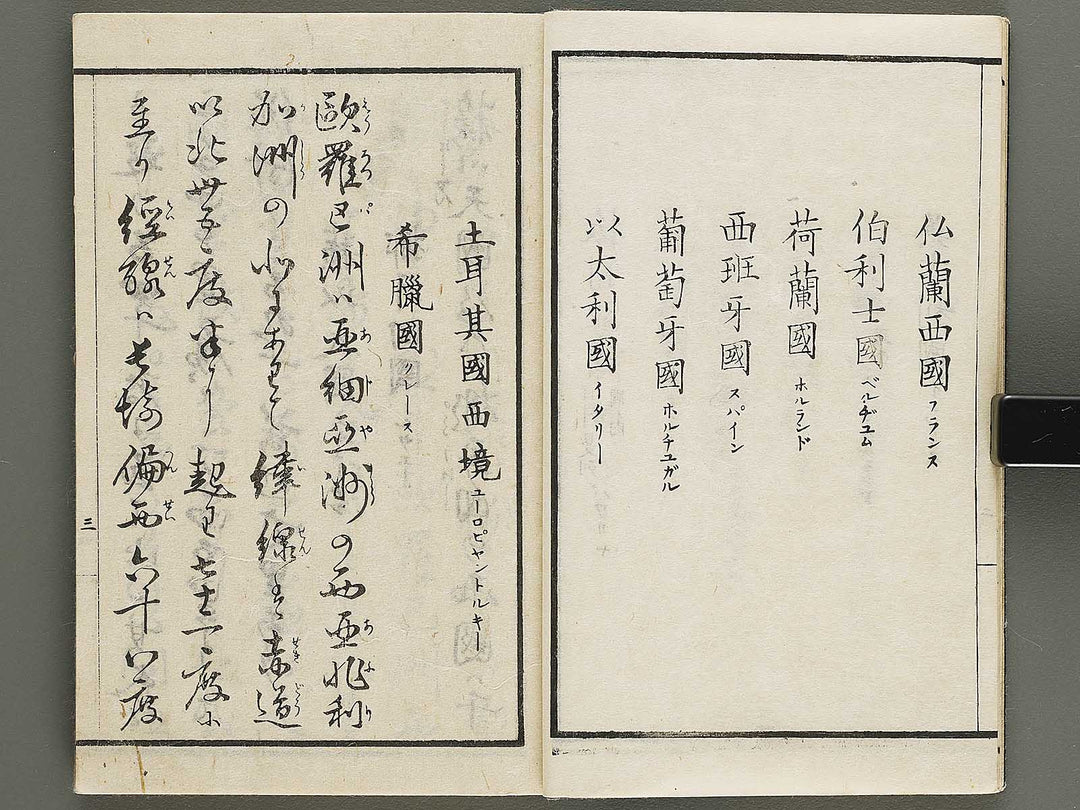 仏蘭西國 フランス
伯利士國 ベルヂユム
荷蘭國 ホルランド
西班牙國 スパイン
葡萄牙國 ホルチユガル
以太利國 イタリー
土耳其國西境 ユーロピヤントルキー
希臘國 グレース
歐羅巴洲ハ亜細亜洲の西亜非利
加洲の北にありて緯線は赤道
以北卅五度半より起り七十一度に
至り經線ハ長崎偏西六十八度
三